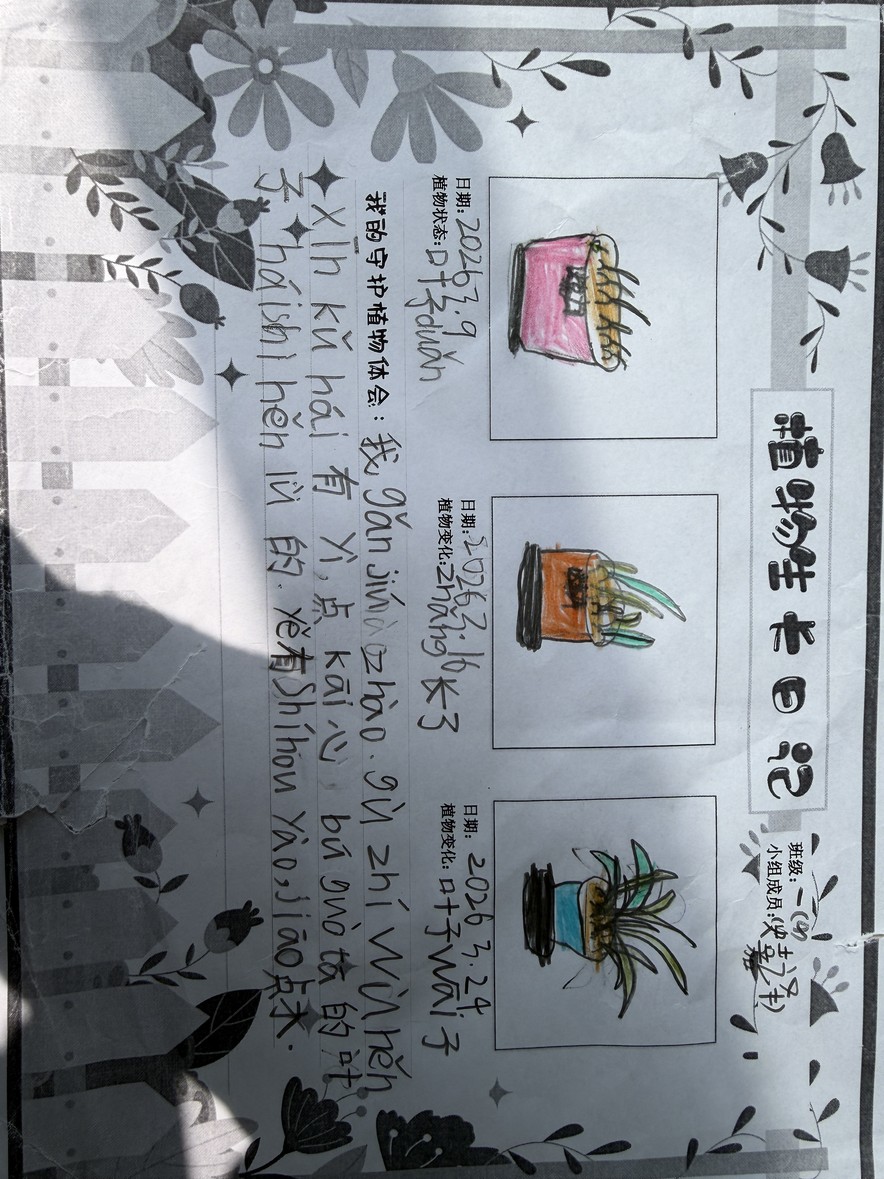 植物生长日记
班级：一(9)
小组成员：(史喆泽)
日期：2026 3.9
植物状态：叶子duǎn
日期：2026 3.16
植物变化：zhǎng长了
日期：2026 3.24
植物变化：叶子wāi了
我的守护植物体会：我 gǎn jiáo zhào gù zhí wù hěn
xīn kǔ hái 有 yì 点 kāi 心 bú guò tā 的 叶
子 háishì hěn lǜ 的. yě有Shíhou yào jiāo点水.